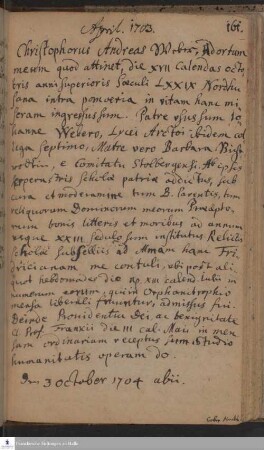 April. 1703. 166.
Christophorus Andreas Weber, Ad ortum
meum quod attinet, die XVII Calendas octo
bris anni superioris Sæculi LXXIX Nordhu
sanæ intra pomoeria in vitam hanc mi
seram ingressus sum. Patre usus sum Jo
hanne Webero, Lycei ibidem col
lega septimo, Matre vero Barbara
e Comitatu Stolbergensi. Ab
scholæ patriæ addictus, sub
cura et moderamine tum B. parentis, tum
reliquorum Dominorum meorum Præcepto
rum bonis litteris et moribus ad annum
usque XXIII sedulo sum institutus. Relictis
scholæ subselliis ad Almam hanc Fri
dricianam me contuli, ubi post ali
quot hebdomades deo
numerum eorum, qui in Orphanotrophio
mensa liberali fruuntur, admissus fui.
Deinde Providentia Dei, ac benignitate
Cl. Prof. Franckii die III cal. Maii in men
sam ordinariam receptus sum. Studio
humanitatis operam do.
Den 3 October 1704 abii.